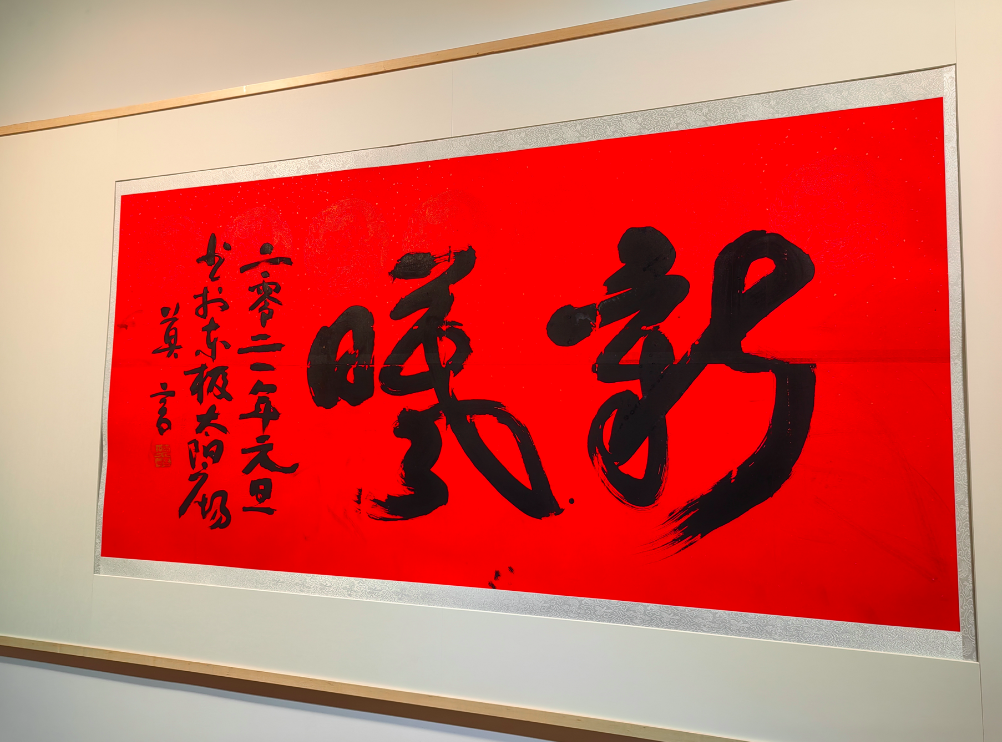 新曦
二零二一年元旦
书於东极太阳广场
莫言